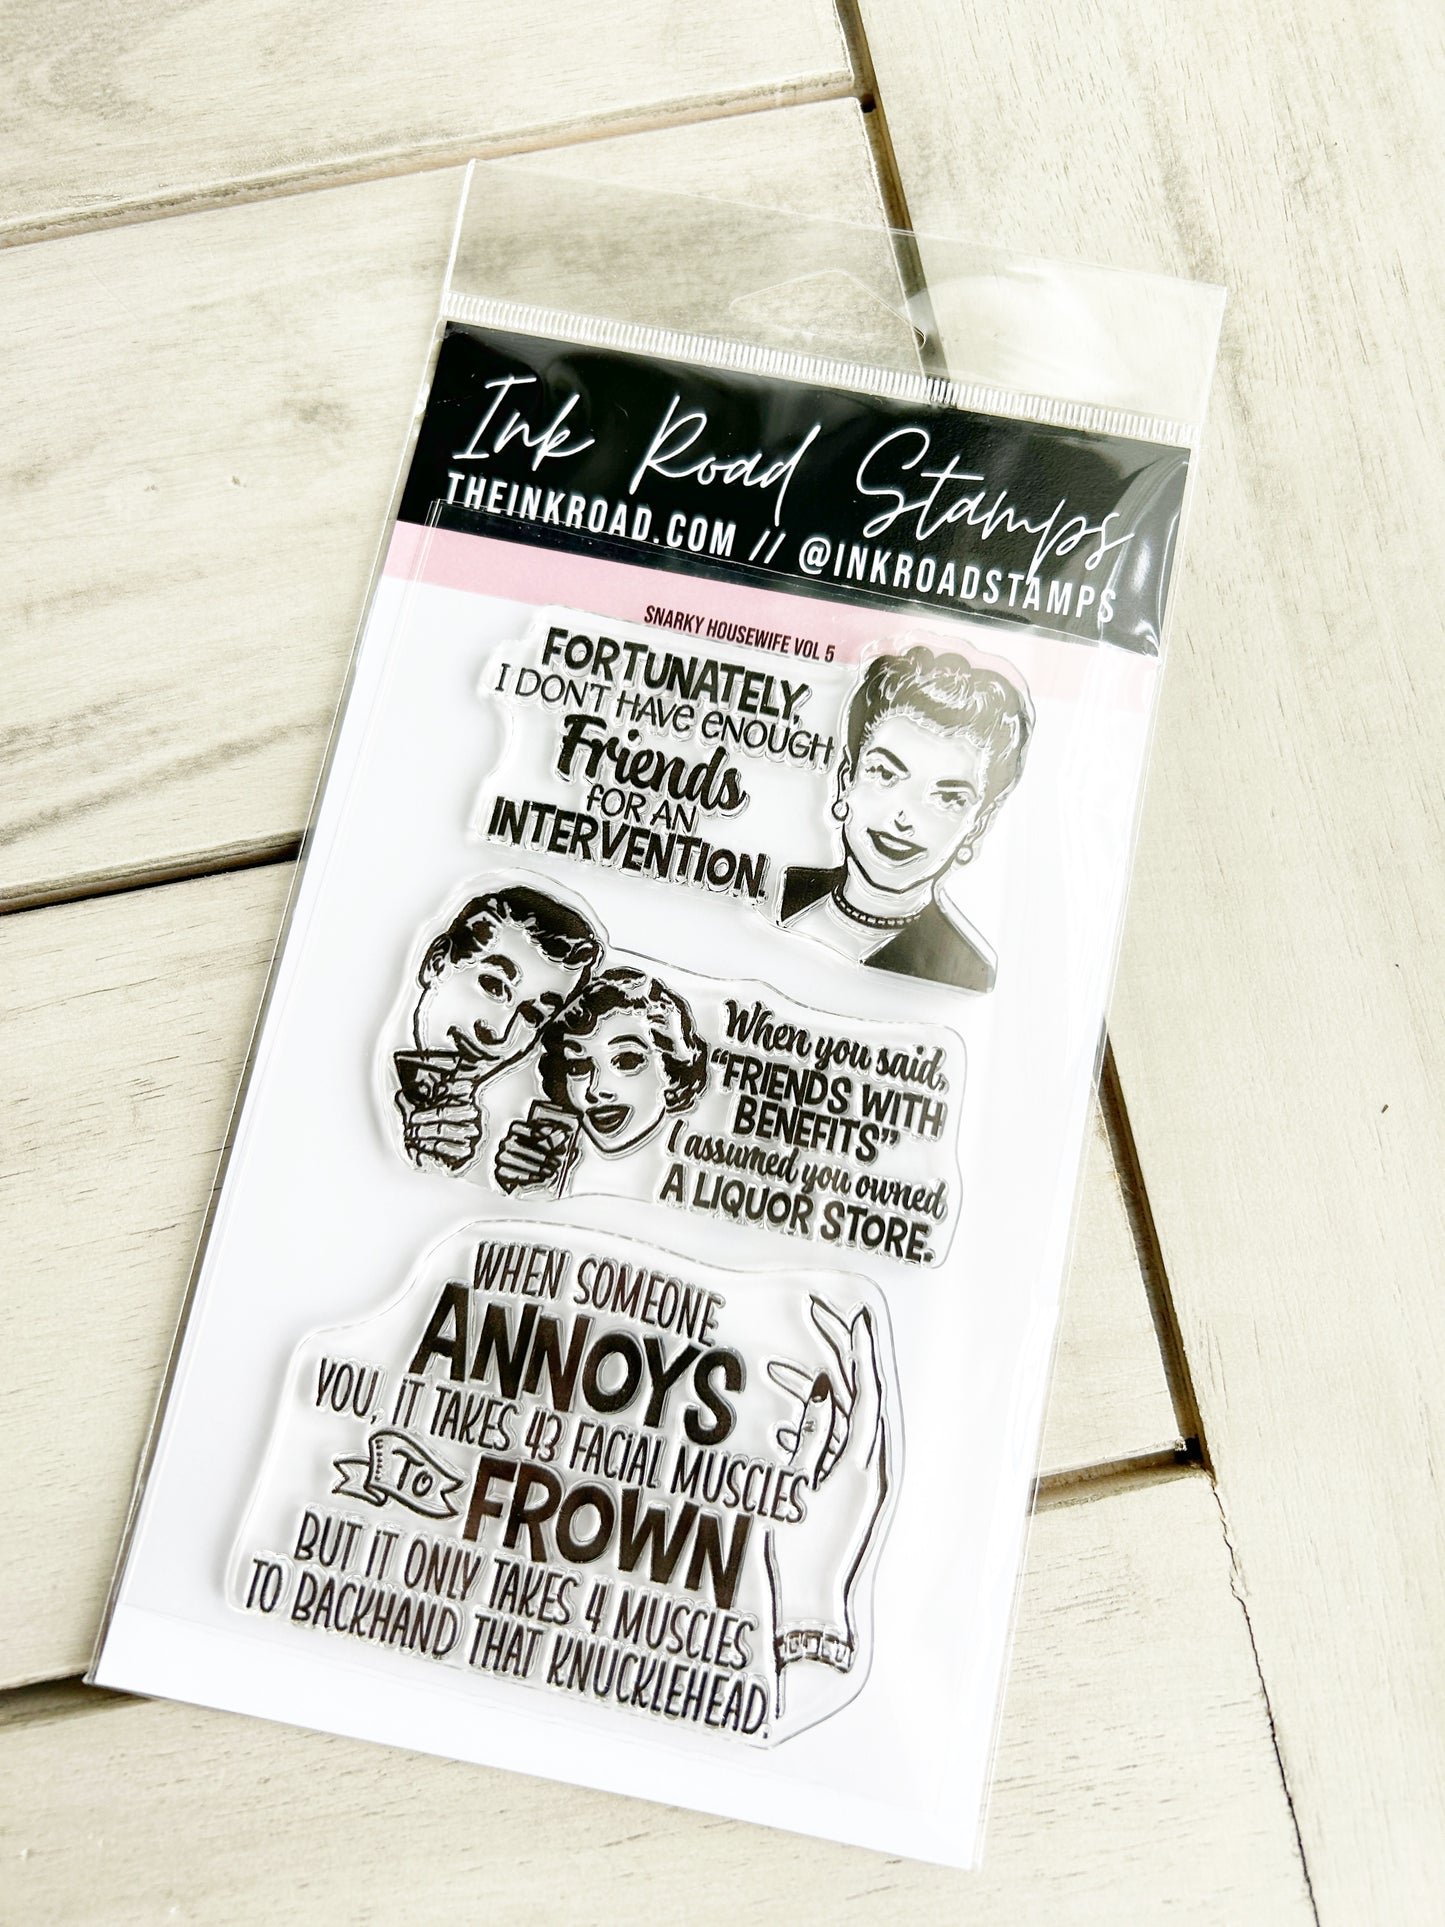 Ink Road Stamps
THEINKROAD.COM // @INKROADSTAMPS
SNARKY HOUSEWIFE VOL 5
FORTUNATELY,
I DON'T HAVE ENOUGH
Friends
FOR AN
INTERVENTION.
When you said,
“FRIENDS WITH
BENEFITS”
I assumed you owned
A LIQUOR STORE.
WHEN SOMEONE
ANNOYS
YOU, IT TAKES 43 FACIAL MUSCLES
TO FROWN
BUT IT ONLY TAKES 4 MUSCLES
TO BACKHAND THAT KNUCKLEHEAD.